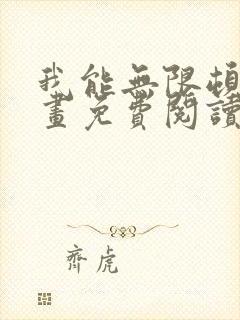 我能無限頓
畫免費閱讀
齊虎